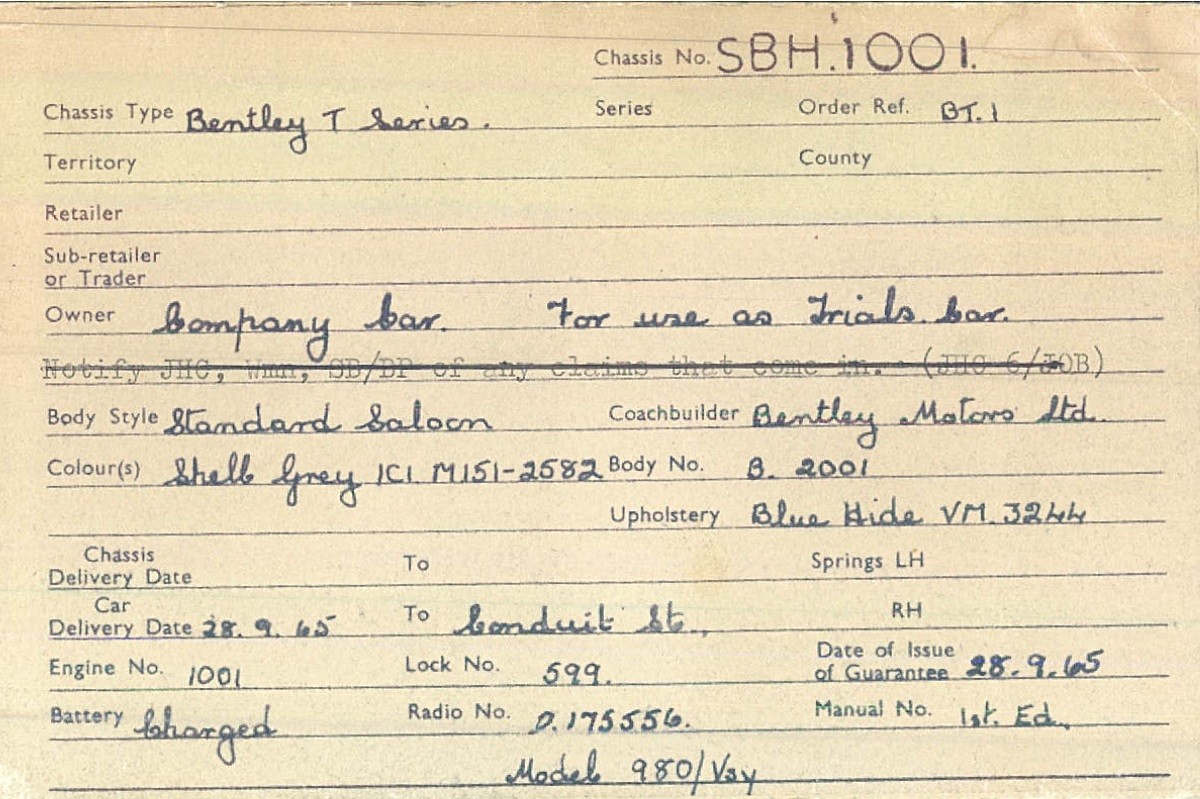 Chassis No. SBH.1001.
Chassis Type Bentley T Series. Series Order Ref. BT.1
Territory County
Retailer
Sub-retailer
or Trader
Owner Company Car. For use as Trials Car.
Notify JHC, Wmn, SB/DP of any claims that come in. - (JHC 6/JOB)
Body Style Standard Saloon Coachbuilder Bentley Motors Ltd.
Colour(s) Shell Grey ICI M151-2582 Body No. B. 2001
Upholstery Blue Hide VM. 3244
Chassis
Delivery Date To Springs LH
Car
Delivery Date 28.9.65 To Conduit St., RH
Engine No. 1001 Lock No. 599. Date of Issue
of Guarantee 28.9.65
Battery Charged Radio No. D.175556. Manual No. 1st. Ed.
Model 980/Vsy